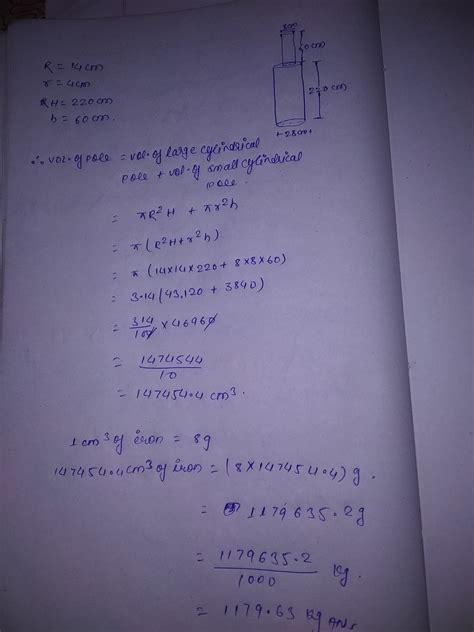 R = 14cm
r = 4cm
H = 220cm
h = 60cm.
0 cm)
∴ vol. of pole = vol. of large cylindrical
pole + vol. of small cylindrical
pole.
= πR²H + πr²h
= π(R²H + r²h)
= π(14×14×220 + 8×8×60)
= 3.14(43,120 + 3840)
= 314/100 × 46960
= 1474544/10
= 147454.4 cm³.
1 cm³ of iron = 8g
147454.4cm³ of iron = (8×147454.4) g.
= 1179635.2g
= 1179635.2/1000 kg.
= 1179.63 kg Ans